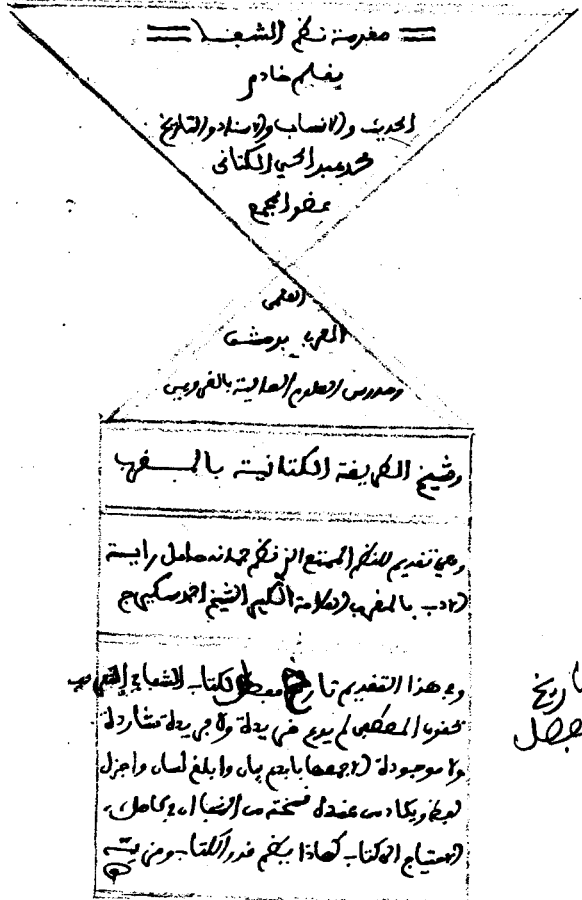 مقدمة نظم الشفا
بقلم خادم
الحديث والانساب والاسناد والتاريخ
محمد عبد الحي الكتاني
عضو المجمع
العلمي
العربي بدمشق
ومدرس العلوم العالية بالقرويين
وشيخ الطريقة الكتانية بالمغرب
وهي تقديم للنظم الممتع الذي نظم جمانه حامل راية
الادب بالمغرب العلامة الكبير الشيخ احمد سكيرج
وبهذا التقديم تاريخ مفصل لكتاب الشفا في التعريف
بحقوق المصطفى لم يدع فريدة ولا جريدة شاردة
ولا موجودة الا جمعها بابدع بيان وابلغ لسان واجزل
لفظ ويكاد من عنده نسخة من الشفا ان يكون بكامل
الاحتياج الى كتاب كهذا يبين قدر الكتاب ومزيته
تاريخ
مفصل